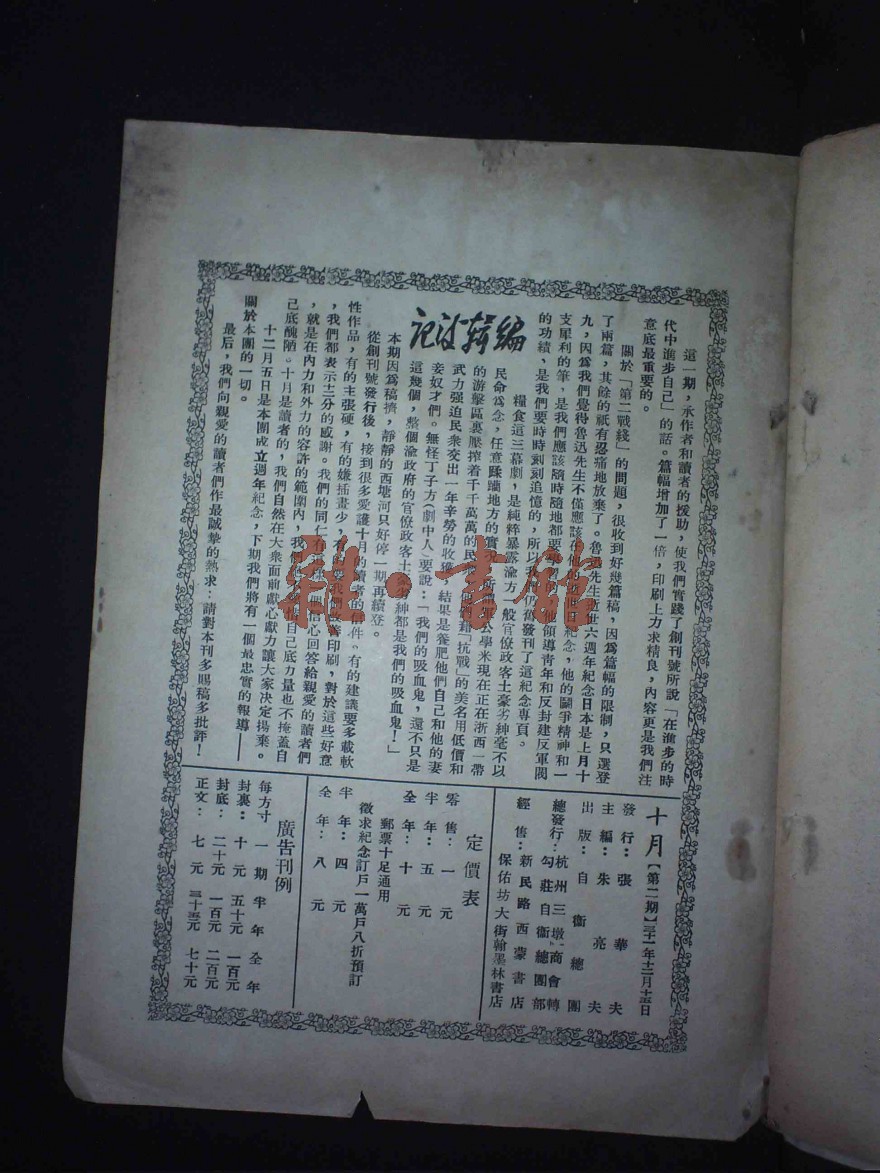 編輯後記
這一期，承作者和讀者的援助，使我們實踐了創刊號所說「在進步的時
代中進步自己」的話。篇幅增加了一倍，印刷上力求精良，內容更是我們注
意底最重要的。
關於「第二戰綫」的問題，很收到好幾篇稿，因爲篇幅的限制，只選登
了兩篇，其餘的祇有忍痛地放棄了。魯迅先生逝世六週年紀念日本是上月十
九，因爲我們覺得魯迅先生不僅應該在他的逝世日紀念，他的鬬爭精神和一
支犀利的筆，是我們應該隨時隨地都要學 他領導青年和反封建反軍閥
的功績，是我們要時時刻刻追憶的，所以 仍舊發刊了這紀念專頁。
糧食這三幕劇，是純粹暴露渝方一般官僚政客土豪劣紳毫不以
民命爲念，任意蹂躪地方的實 所謂 公學米現在正在浙西一帶
的游擊區裏壓搾着千千萬萬的民 「抗戰」的美名用低價和
武力强迫民衆交出一年辛勞的收穫 結果是養肥他們自己和他的妻
妾奴才們。無怪丁子方（劇中人）要說：「我們的吸血鬼，還不只是
這幾個，整個渝政府的官僚政客土豪劣紳都是我們的吸血鬼！」
本期因爲稿擠，靜靜的西塘河只好停一期再續登。
從創刊號發行後，接到很多愛護十月的讀者的信件。有的建議要多載軟
性作品，有的主張硬，有的嫌插畫少，有的要我們改善印刷，對於這些好意
，我們都表示十二分的感謝。我們的同仁有 信心回答給親愛的讀者們
，就是在內力和外力的容許的範圍內，我們 自己底力量也不掩蓋自
己底醜陋。十月是讀者的，我們自然在大衆面前獻心獻力讓大家決定揚棄。
十二月五日是本團成立週年紀念，下期我們將有一個最忠實的報導——
關於本團的一切。
最后，我們向親愛的讀者們作最誠摯的熱求：請對本刊多賜稿多批評！
十月【第二期】三十一年十一月十五日
發行：張華夫
主編：朱亮夫
出版：自衞總團
總發行：杭州三墩商會轉
勾莊自衞總團部
經售：新民路西蒙書店
保佑坊大街翰墨林書店
定價表
零售：一元
半年：五元
全年：十元
郵票十足通用
徵求紀念訂戶一萬戶八折預訂
半年：四元
全年：八元
廣告刊例
每方寸 一期 半年 全年
封裏：十元 五十元 一百元
封底：二十元 一百元 二百元
正文：七元 三十五元 七十元
雜·書館